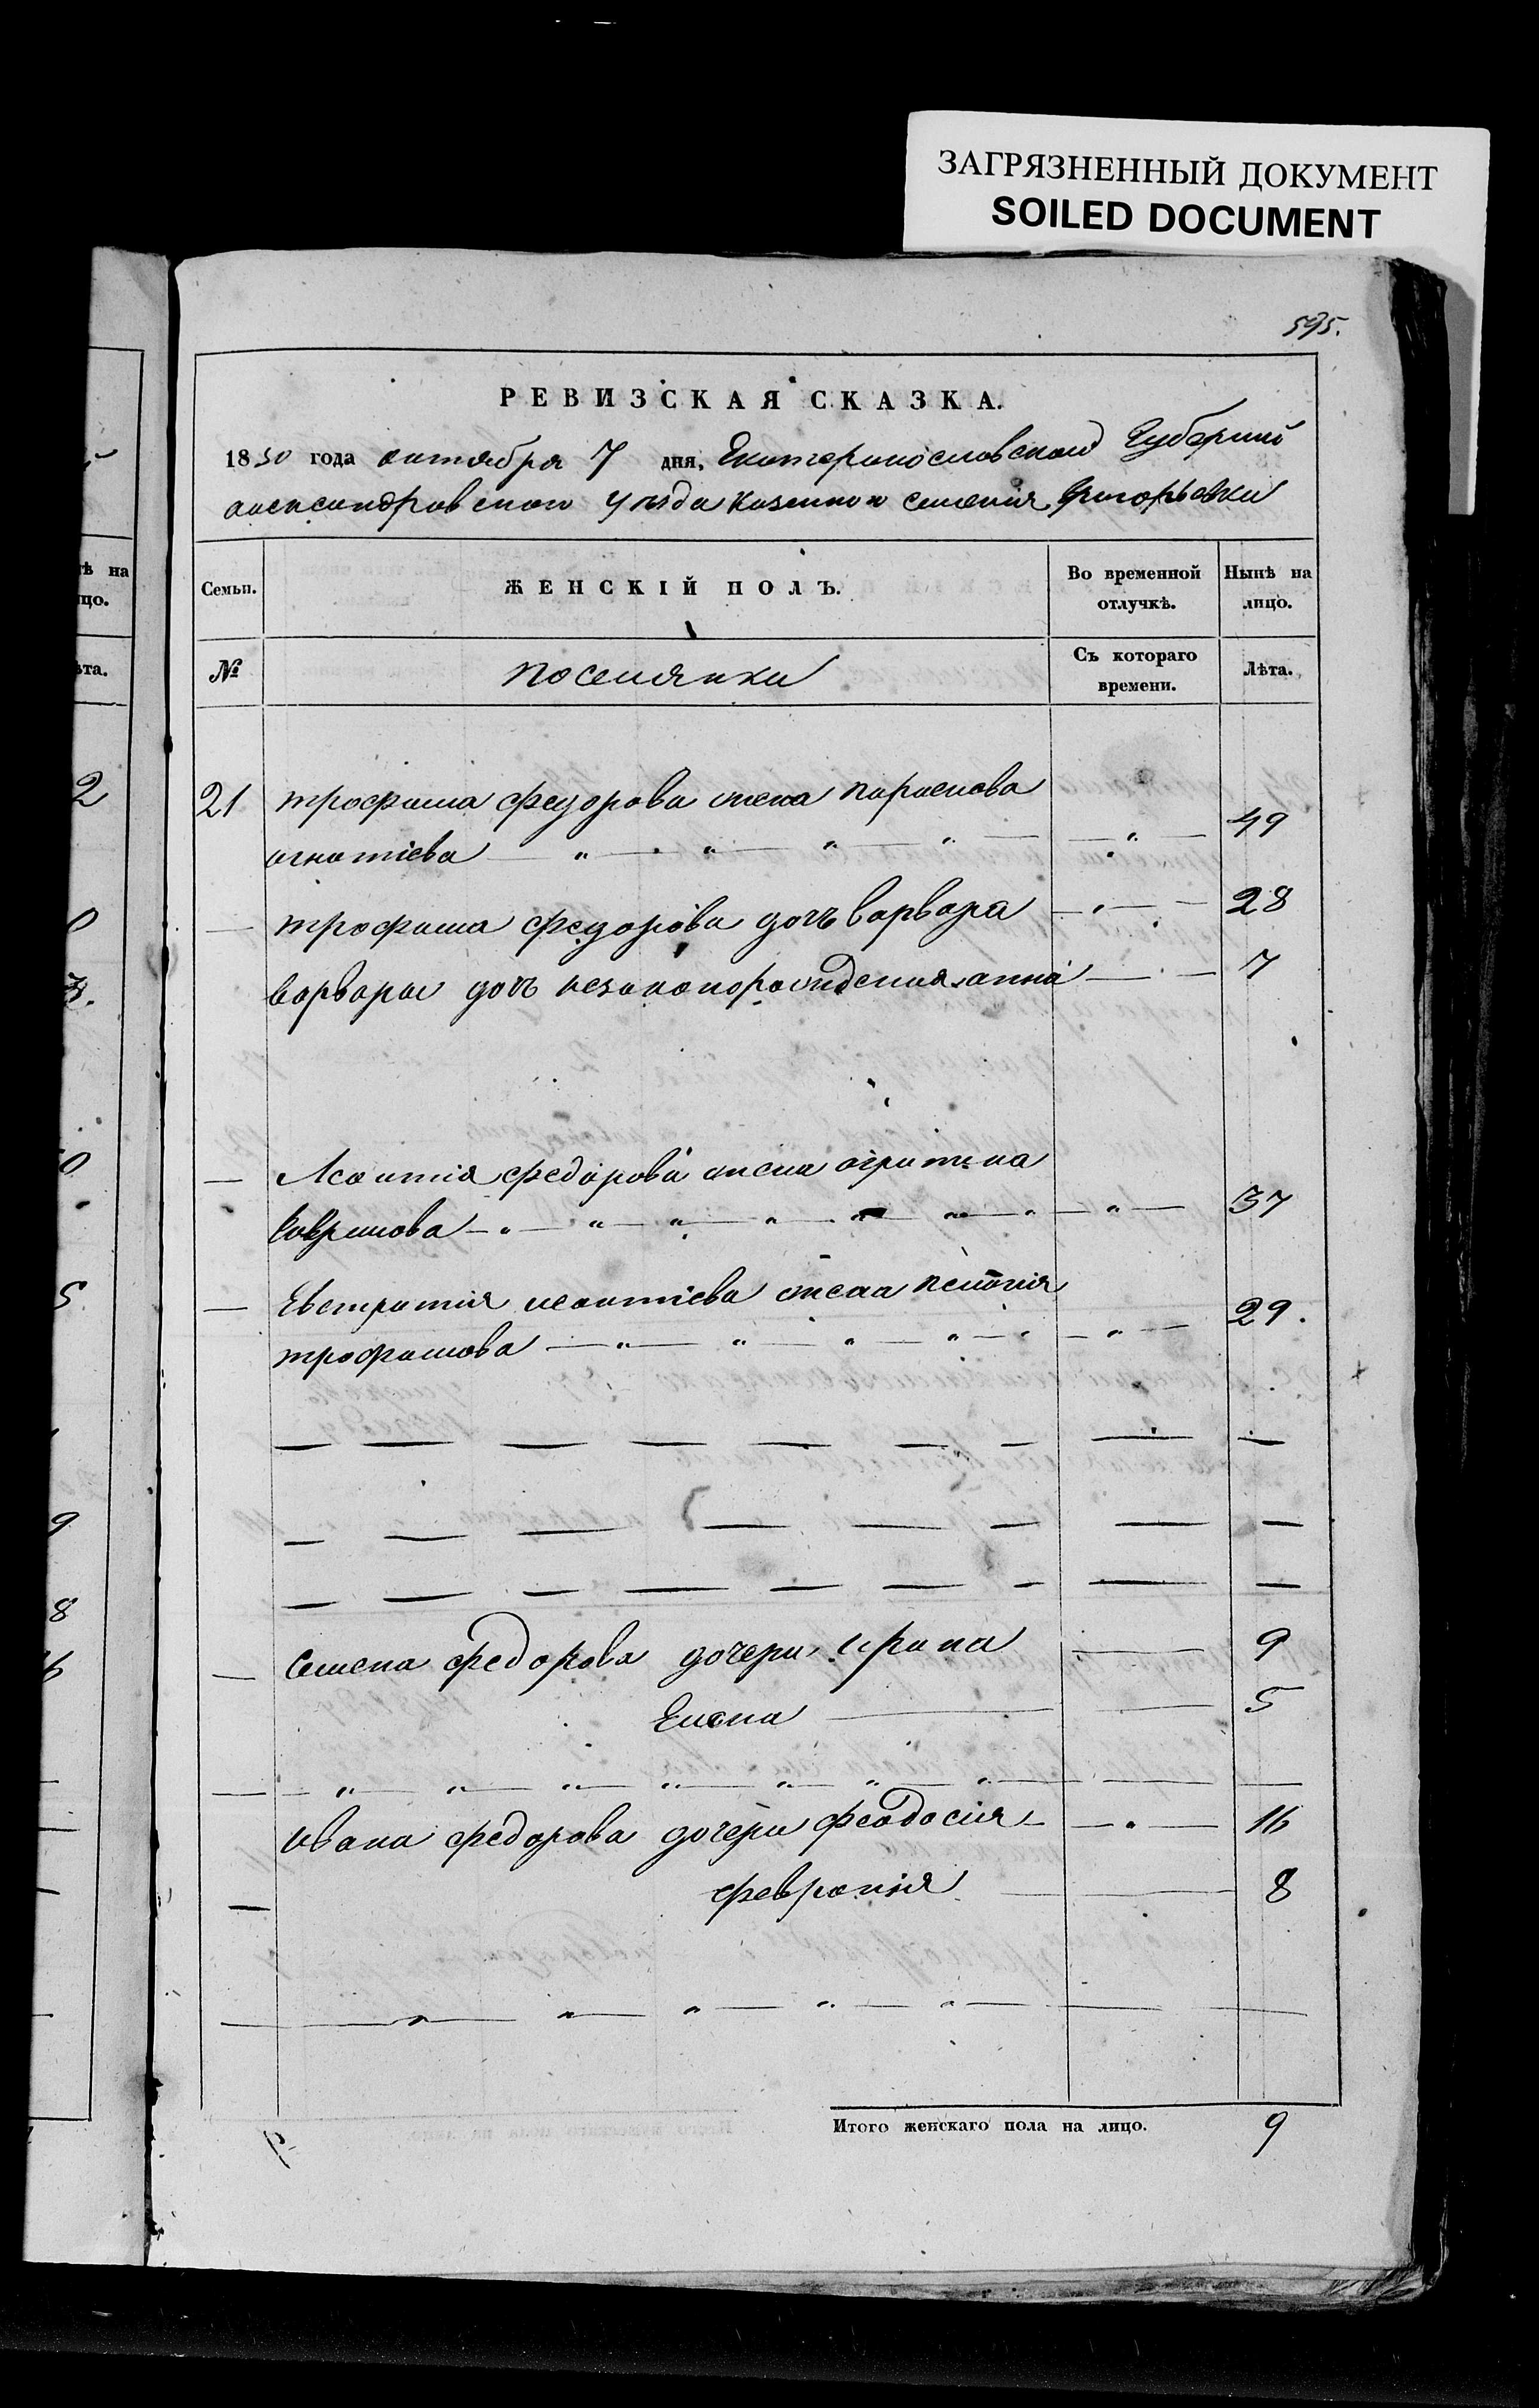 ЗАГРЯЗНЕННЫЙ ДОКУМЕНТ
SOILED DOCUMENT
595.
РЕВИЗСКАЯ СКАЗКА.
1850 года октября 7 дня, Екатеринославской Губернии
александровскои уезда казеннои селения Григорьевки
Семьи. ЖЕНСКІЙ ПОЛЪ. Во временной отлучкѣ. Нынѣ на лицо.
№ поселянки Съ котораго времени. Лѣта.
21 трофима федорова жена параскова
игнатіева — „ — „ — „ — „ — — „ — 49
— трофима федорова дочь варвара — „ — 28
варвары дочь незаконорожденная анна — 7
— Леонтія федорова жена огрипина
Ковримова — „ — „ — „ — „ — „ — „ — „ — 37
— Евстратия леонтіева жена пелогия
трофимова — „ — „ — „ — „ — „ — 29.
— Семена федорова дочери, ирина — 9
Елена — 5
— „ — „ — „ — „ — „ — „ — „ —
ивана федорова дочери феодосия — „ — 16
— феврония — 8
— „ — „ — „ — „ — „ —
Итого женскаго пола на лицо. 9